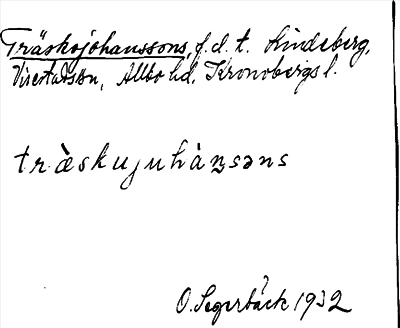 Träskojohanssons, f.d. t. Lindeberg,
Virestadssn, Allbo hd, Kronobergs l.
træ̀skujuhàn̥səns
O. Segerbäck 1932